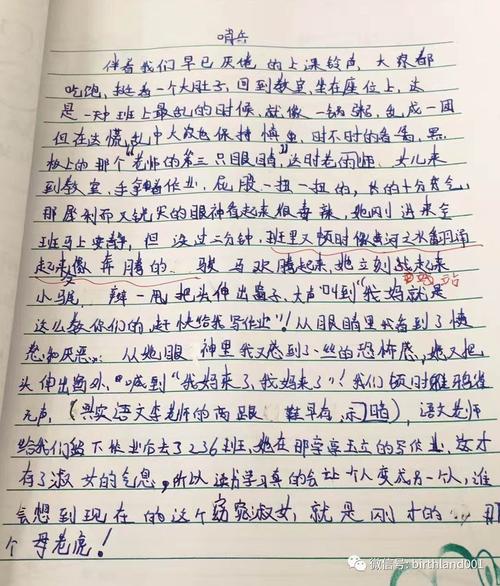 哨兵
伴着我们早已厌倦的上课铃声，大家都
吃饱，挺着一个大肚子，回到教室坐在座位上，这
是一种班上最乱的时候，就像一锅粥，乱成一团
但在这慌乱中大家也保持慎重，时不时的看看，黑
板上的那个"老师的第三只眼睛"，这时老师、女儿来
到教室，手拿着作业，屁股一扭一扭的，长的十分秀气，
那犀利而又锐尖的眼神看起来很毒辣，她刚进来全
班马上安静，但没过三分钟，班里又顿时像黄河之水翻滔
起来像奔腾的骏马欢腾起来，她立刻战起来 站
小 ，辫一甩把头伸出窗子，大声叫到"我妈就是
这么教你们的，赶快给我写作业"！从眼睛里我看到了愤
怒和厌恶。从她眼神里我又感到了一丝的恐怖感，她又把
头伸出窗外，喊到"我妈来了，我妈来了"！我们顿时鸦雀
无声，（其实语文李老师的两眼 难早有 ），语文老师
给我们留下作业后去了236班，她在那亭亭玉立的写作业，这才
有了淑女的气息，所以读书学习真的会让个人变成另一个人，谁
会想到现在的这个窈窕淑女，就是刚才的...那
个母老虎！
微信号: birthland001